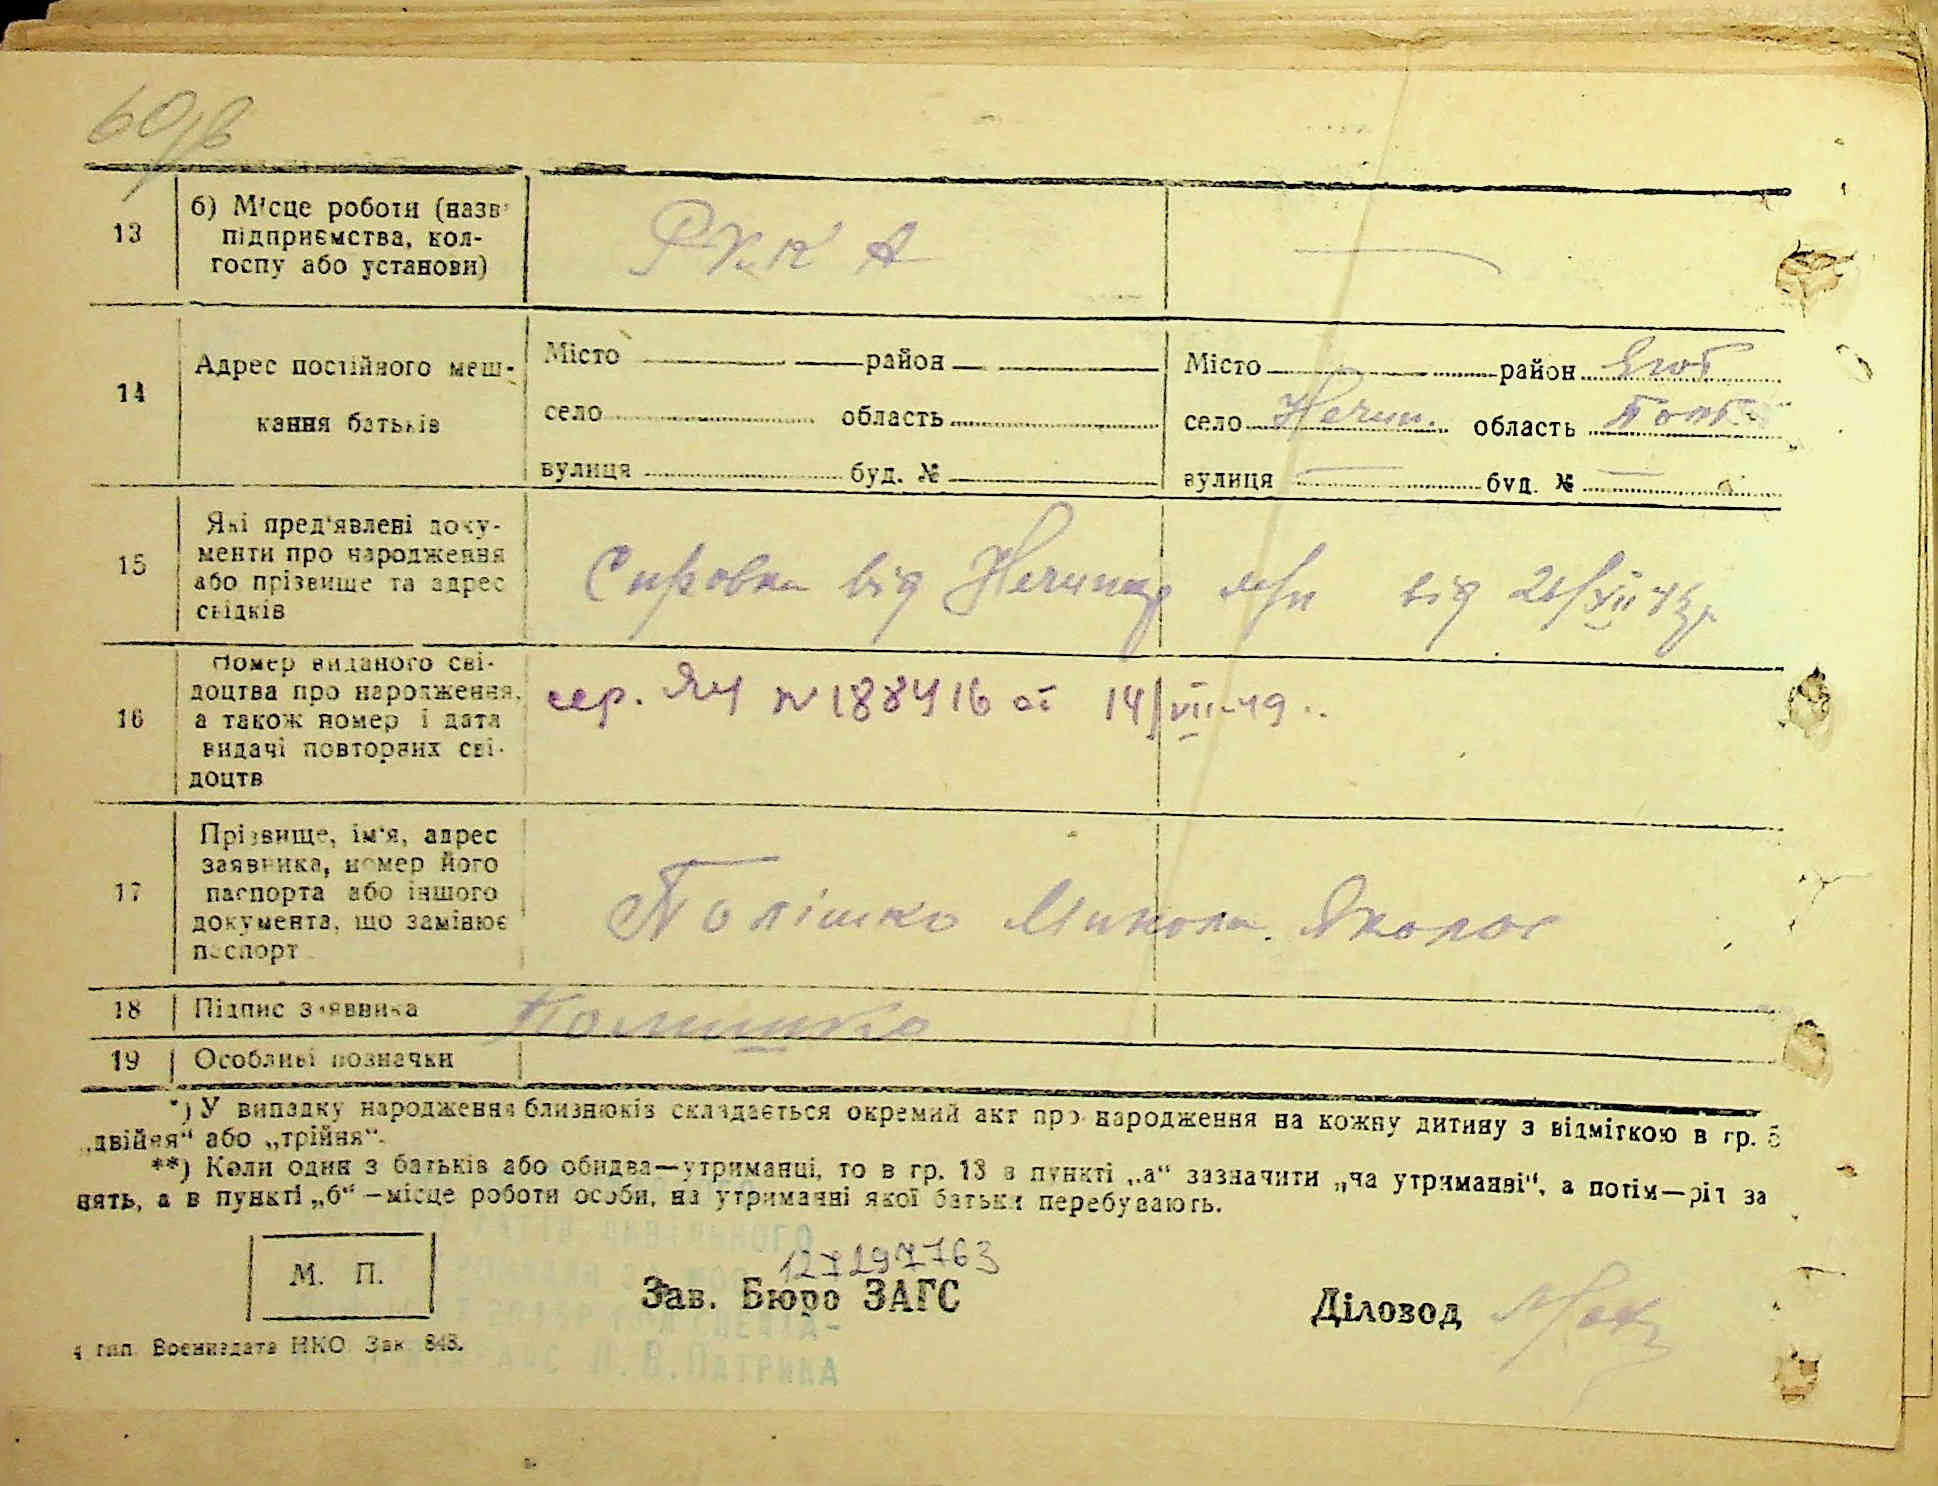 60/в
13 б) Місце роботи (назв
підприємства, кол-
госпу або установи)
РККА —
14 Адрес постійного меш-
кання батьків
Місто район
село область
вулиця буд. №
Місто район
село Нечип. область Полт
вулиця — буд. № —
15 Які пред'явлені доку-
менти про народження
або прізвище та адрес
свідків
від від
16 Номер виданого сві-
доцтва про народження,
а також номер і дата
видачі повторних сві-
доцтв
сер. ЯЧ № 188416 от 14/VII-49..
17 Прізвище, ім'я, адрес
заявника, номер його
паспорта або іншого
документа, що замінює
паспорт
Полішко Микола
18 Підпис заявника Полишко
19 Особливі позначки
*) У випадку народження близнюків складається окремий акт про народження на кожну дитину з відміткою в гр. 5
„двійня“ або „трійня“.
**) Коли один з батьків або обидва—утриманці, то в гр. 13 в пункті „а“ зазначити „на утриманні“, а потім—рід за
нять, а в пункті „б“ —місце роботи особи, на утриманні якої батьки перебувають.
127297763
М. П. Зав. Бюро ЗАГС Діловод
тип. Воениздата НКО Зак 848.
Л. В. Патрика